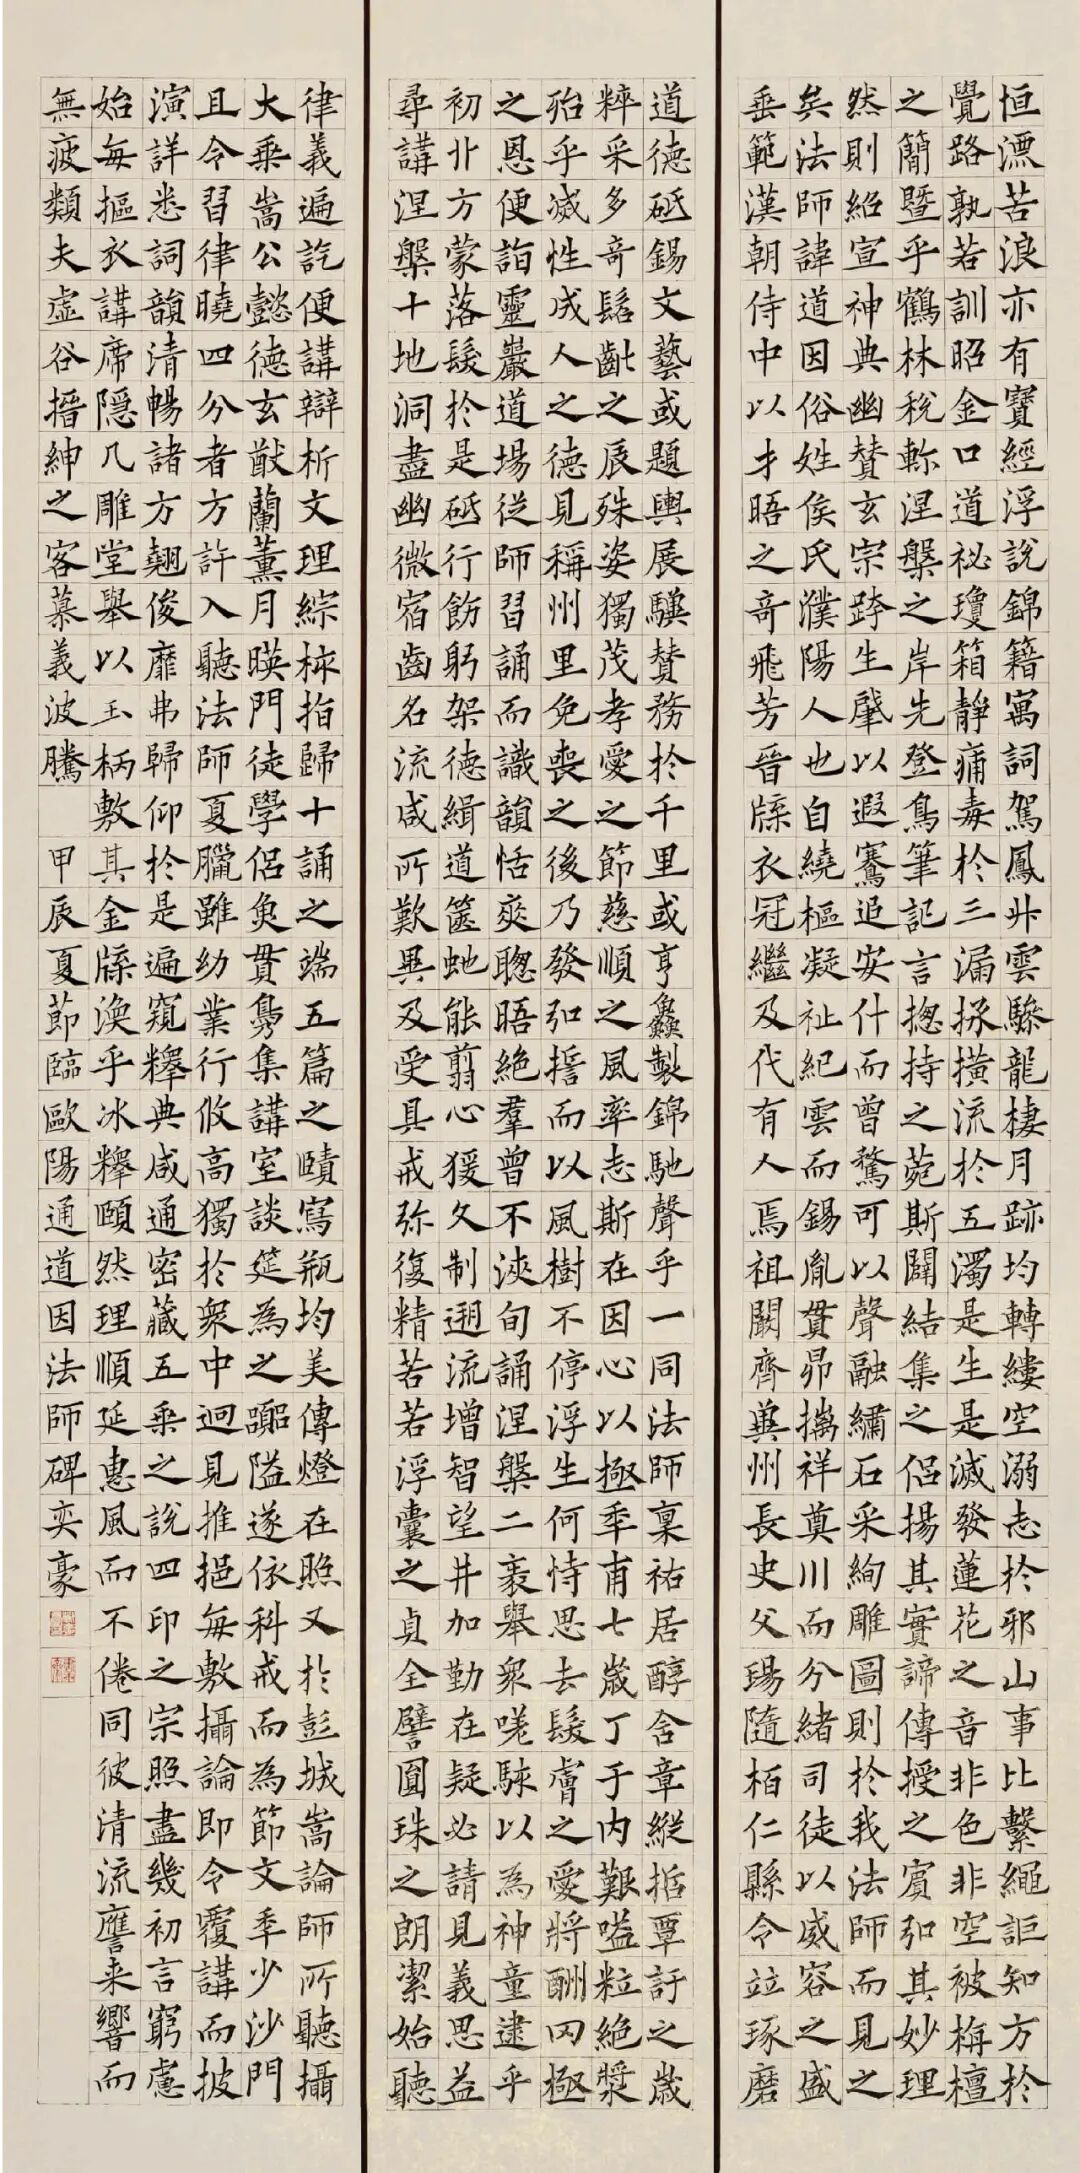 恒漂苦浪亦有寶經浮說錦籍寓詞駕鳳升雲驂龍棲月跡均轉縷空溺志於邪山事比繫繩詎知方於
覺路孰若訓昭金口道祕瓊箱靜痡毒於三漏拯横流於五濁是生是滅發蓮花之音非色非空被栴檀
之簡暨乎鶴林稅軫涅槃之岸先登鳥筆記言揔持之菀斯闢結集之侶揚其實諦傳授之賓弘其妙理
然則紹宣神典幽贊玄宗跨生肇以遐騫追安什而曾驚可以聲融繡石采絢雕圖則於我法師而見之
矣法師諱道因俗姓侯氏濮陽人也自繞樞凝祉紀雲而錫胤貫昴摛祥奠川而分緒司徒以威容之盛
垂範漢朝侍中以才晤之奇飛芳晉牒衣冠繼及代有人焉祖闞齊冀州長史父瑒隨柏仁縣令竝琢磨
道德砥錫文藝或題輿展驥贊務於千里或亨鱻製錦馳聲乎一同法師稟祐居醇含章縱哲覃訏之歲
粹采多奇髫齔之辰殊姿獨茂孝愛之節慈順之風率志斯在因心以極年甫七歲丁于内艱嗌粒絕漿
殆乎滅性成人之德見稱州里免喪之後乃發弘誓而以風樹不停浮生何恃思去髮膚之愛將酬罔極
之恩便詣靈巖道場從師習誦而識韻恬爽聰晤絕羣曾不浹旬誦涅槃二袠舉衆嗟駭以為神童逮乎
初北方蒙落髮於是砥行飭躬架德緝道篋虵能翦心猨久制遡流增智望井加勤在疑必請見義思益
尋講涅槃十地洞盡幽微宿齒名流咸所歎異及受具戒弥復精苦若浮囊之貞全譬圓珠之朗潔始聽
律義遍訖便講辯析文理綜核指歸十誦之端五篇之賾寫瓶均美傳燈在照又於彭城嵩論師所聽攝
大乘嵩公懿德玄猷蘭薰月暎門徒學侶魚貫鳧集講室談筵為之嚻隘遂依科戒而為節文年少沙門
且令習律曉四分者方許入聽法師夏臘雖幼業行攸高獨於衆中迥見推挹每敷攝論即令覆講而披
演詳悉詞韻清暢諸方翹俊靡弗歸仰於是遍窺釋典咸通密藏五乘之說四印之宗照盡幾初言窮慮
始每摳衣講席隱几雕堂舉以玉柄敷其金牒渙乎冰釋頤然理順延惠風而不倦同彼清流譍来響而
無疲類夫虛谷搢紳之客慕義波騰
甲辰夏節臨歐陽通道因法師碑奕豪